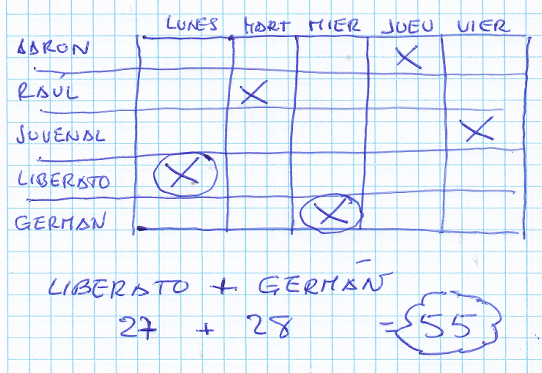 LUNES MART MIER JUEV VIER
AARON X
RAÚL X
JUVENAL X
LIBERATO X
GERMAN X
LIBERATO + GERMÁN
27 + 28 = 55